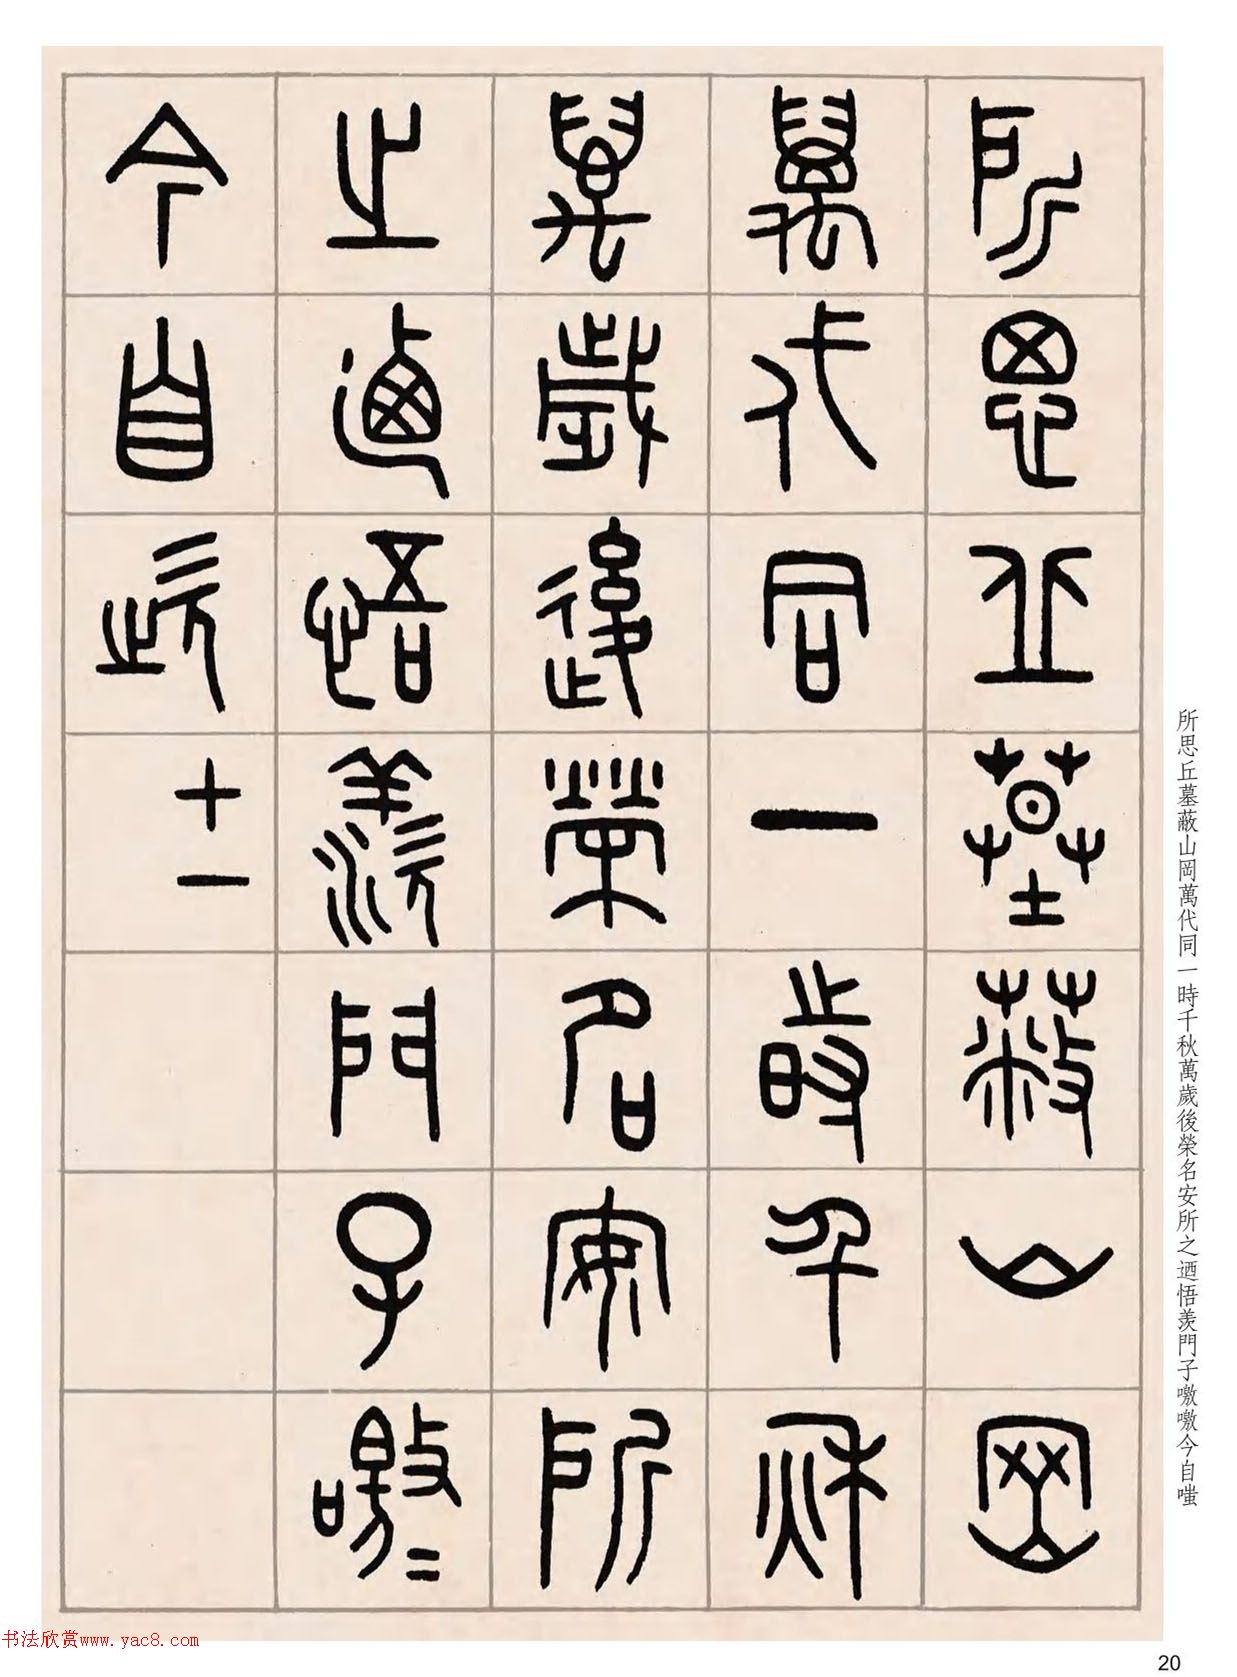 所思丘墓蔽山岡
萬代同一時千秋
萬歲後榮名安所
之逌悟羨門子噭=
今自嗤十一
所思丘墓蔽山岡萬代同一時千秋萬歲後榮名安所之迺悟羨門子噭噭今自嗤
书法欣赏www.yac8.com
20